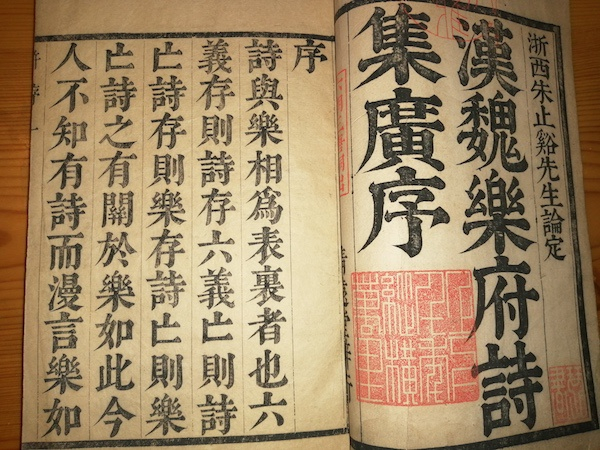 浙西朱止谿先生論定
漢魏樂府詩
集廣序
序
詩與樂相爲表裏者也六
義存則詩存六義亡則詩
亡詩存則樂存詩亡則樂
亡詩之有關於樂如此今
人不知有詩而漫言樂如